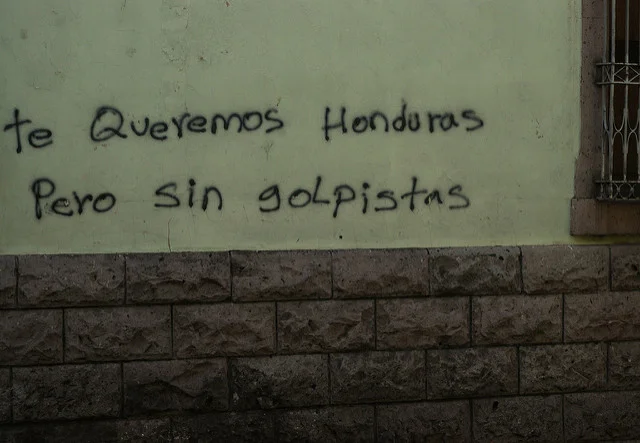 te Queremos Honduras
Pero sin golpistas